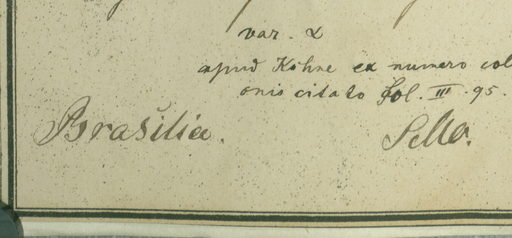 var. α
apud Köhne ex numero col
onis citato fol. III. 95.
Brasilia. Sello.